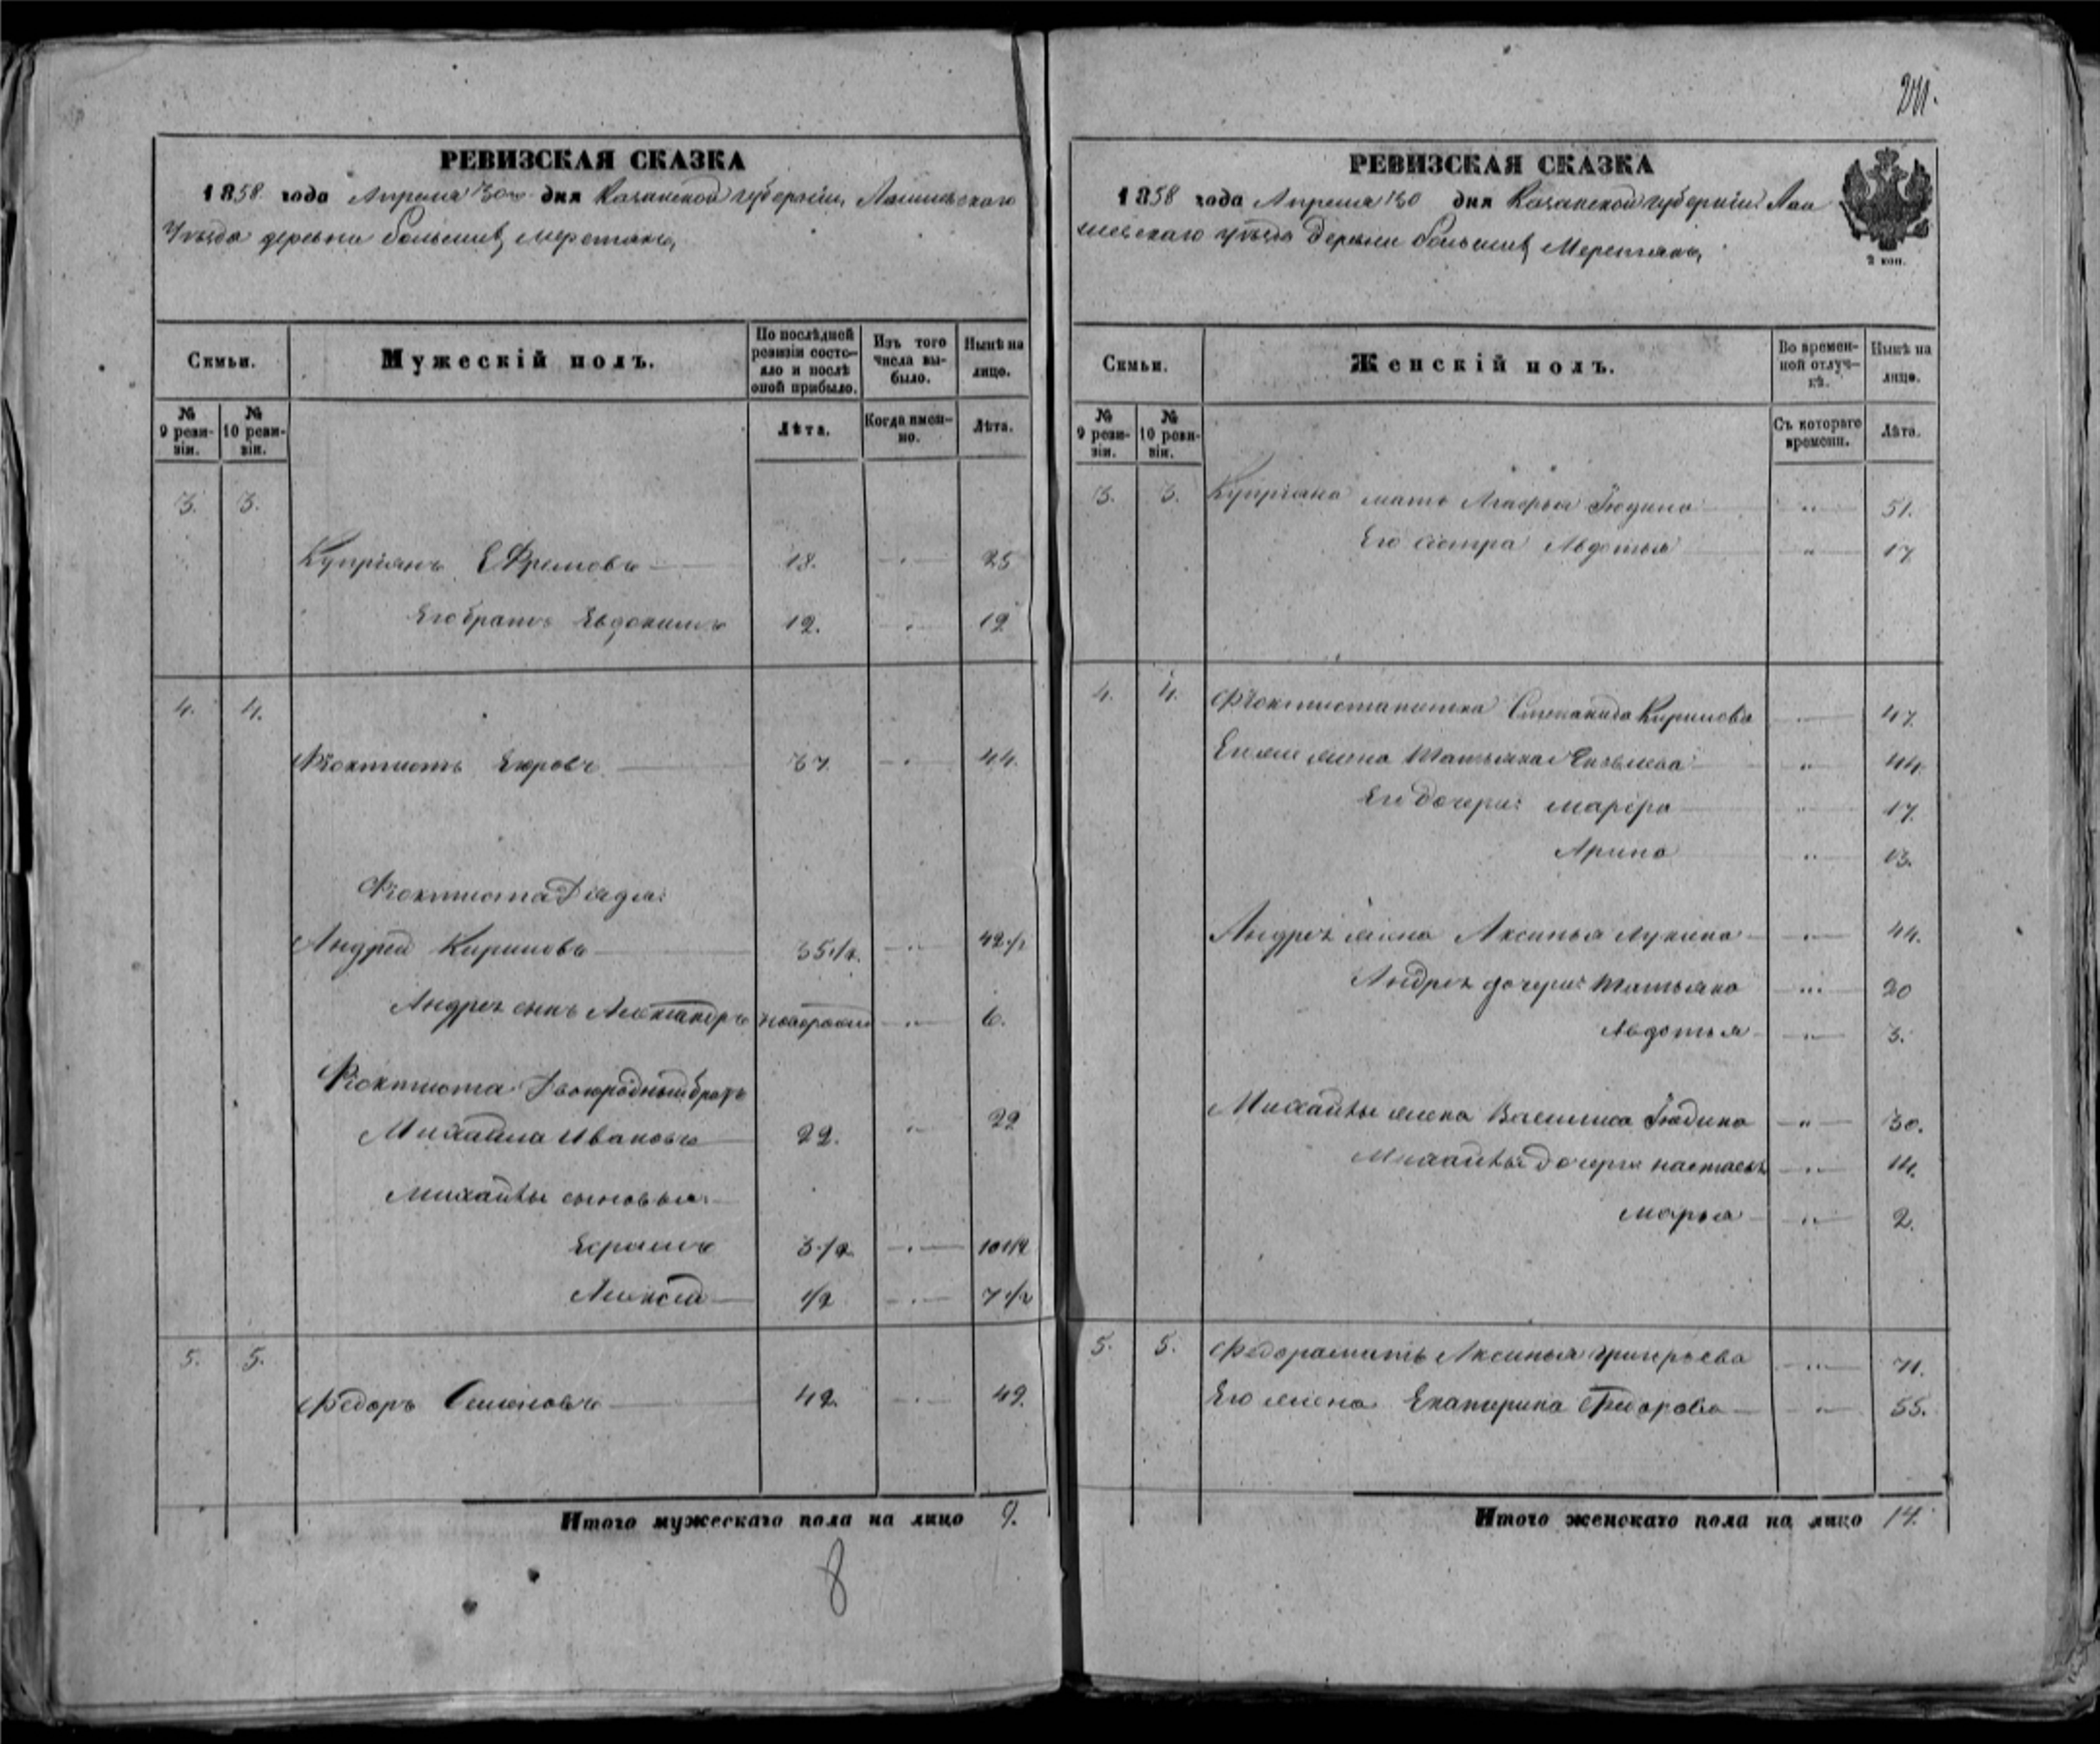 241.
РЕВИЗСКАЯ СКАЗКА
1858 года Апреля 30го дня Казанской губернии, Лаишевскаго
Уѣзда деревни большихъ меретяковъ
Семьи.
Мужескій полъ.
По послѣдней ревизіи состояло и послѣ оной прибыло.
Изъ того числа выбыло.
Нынѣ на лицо.
№ 9 ревизіи.
№ 10 ревизіи.
Лѣта.
Когда именно.
Лѣта.
3. 3.
Купріянъ Ефремовъ 18. 25
Его братъ Евдокимъ 12. 19
4. 4.
Фіоктистъ Егоровъ 37. 44.
Фіоктиста Дядя:
Андрей Кириловъ 35 1/2. 42 1/2
Андрея сынъ Александръ 6.
Фіоктиста Двоюродный братъ
Михайла Ивановъ 22. 29
Михайлы сыновья:
3 1/2 10 1/2
Алексей 1/2 7 1/2
5. 5.
Федоръ Семеновъ 42. 49.
Итого мужескаго пола на лицо 9.
8
РЕВИЗСКАЯ СКАЗКА
1858 года Апреля 30 дня Казанской губерніи Лаи
шевскаго уѣзда деревни большихъ Меретяковъ
2 коп.
Семьи.
Женскій полъ.
Во временной отлучкѣ.
Нынѣ на лицо.
№ 9 ревизіи.
№ 10 ревизіи.
Съ котораго времени.
Лѣта.
3. 3. Купріяна мать Агафья Іюдина 51.
Его сестра Авдотья 17
4. 4. Фіоктиста тетка Степанида Кирилова 47.
жена Татьяна 44.
Его дочери: марфра 17.
Арина 13.
Андрея жена Аксинья Лукина 44.
Андрея дочери: Татьяна 20
Авдотья 3.
Михайлы жена Василиса Іюдина 30.
Михайлы дочери настасья 11.
Марья 2.
5. 5. Федора мать Аксинья григорьева 71.
Его жена Екатерина Федорова 55.
Итого женскаго пола на лицо 14.